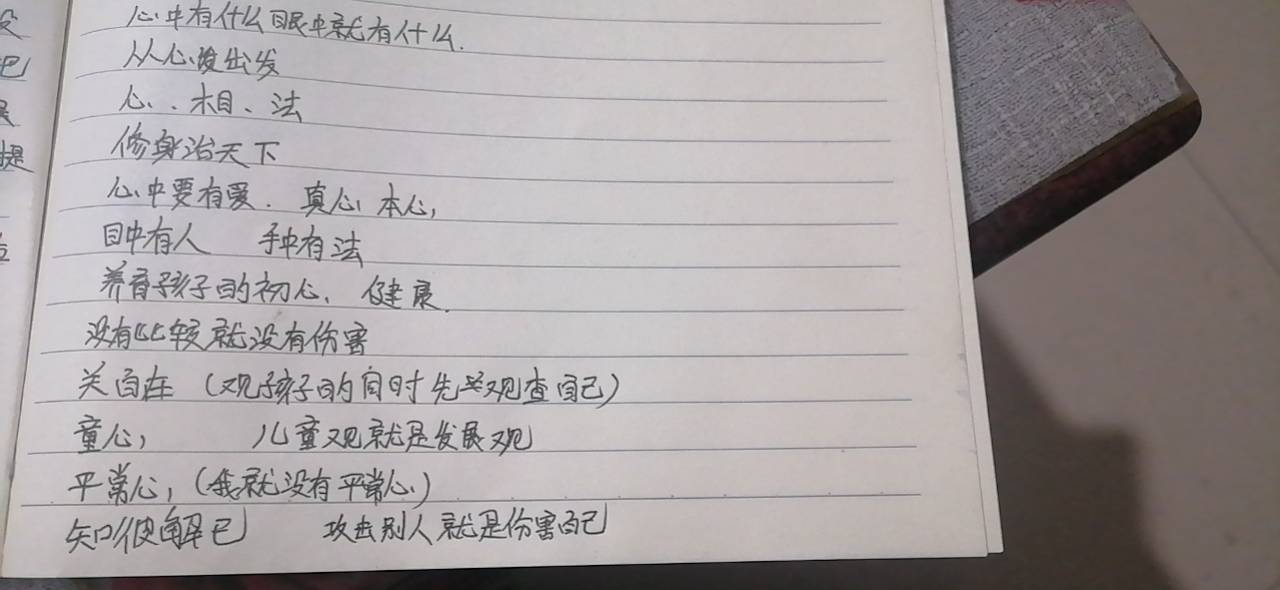 心中有什么眼中就有什么.
从心发出发
心、相、法
修身治天下
心中要有爱. 真心 本心,
目中有人 手中有法
养育孩子的初心、健康.
没有比较就没有伤害
关自在（观孩子的同时先观查自己）
童心, 儿童观就是发展观
平常心,（我就没有平常心）
知彼解己 攻击别人就是伤害自己